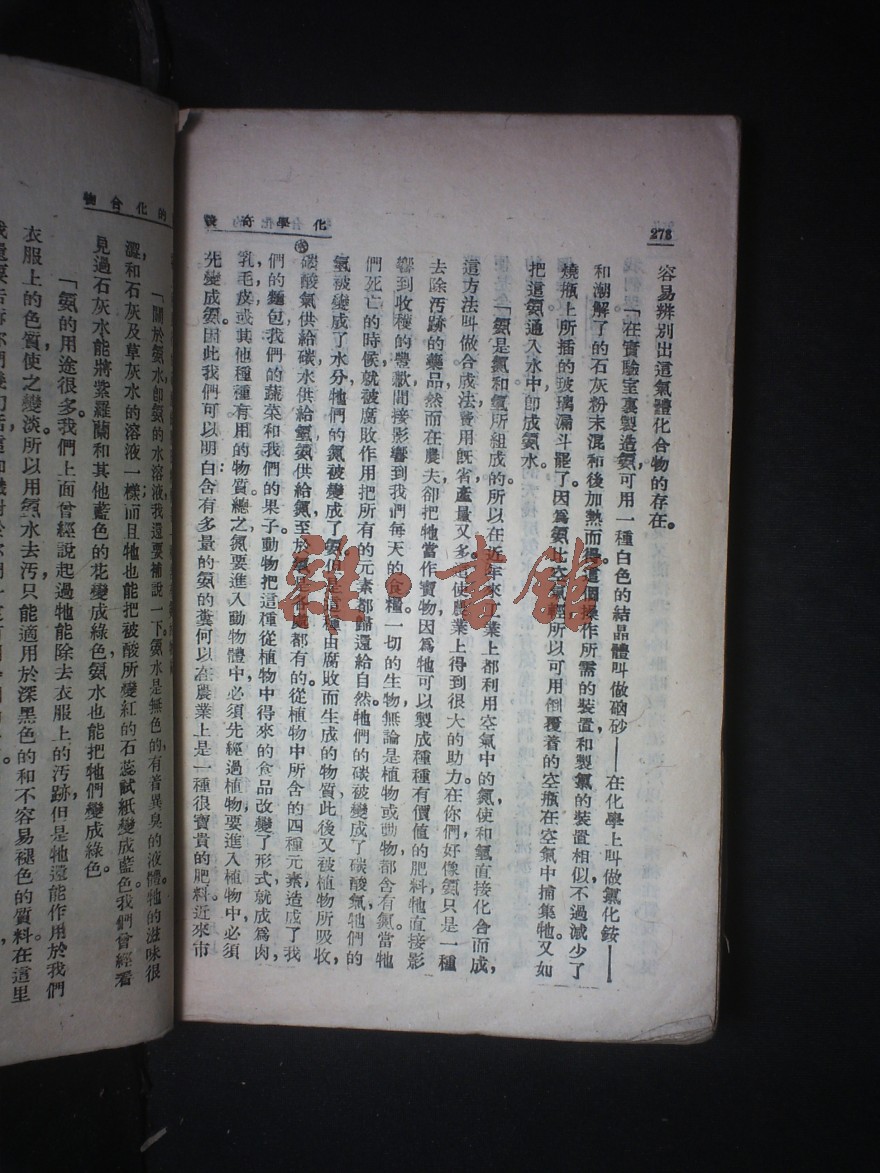 278
化學奇談
容易辨別出這氣體化合物的存在。
「在實驗室裏製造氨,可用一種白色的結晶體叫做硇砂——在化學上叫做氯化銨——
和潮解了的石灰粉末混和後加熱而得。這個操作所需的裝置和製氯的裝置相似不過減少了
燒瓶上所插的玻璃漏斗罷了。因爲氨比空氣輕所以可用倒覆着的空瓶在空氣中捕集牠又如
把這氨通入水中卽成氨水。
「氨是氮和氫所組成的。所以在近年來工業上都利用空氣中的氮使和氫直接化合而成,
這方法叫做合成法費用旣省產量又多是使農業上得到很大的助力在你們好像氨只是一種
去除汚跡的藥品然而在農夫卻把牠當作寶物因爲牠可以製成種種有價値的肥料牠直接影
響到收穫的豐歉間接影響到我們每天的食糧。一切的生物無論是植物或動物都含有氮當牠
們死亡的時候就被腐敗作用把所有的元素都歸還給自然。牠們的碳被變成了碳酸氣牠們的
氫被變成了水分牠們的氮被變成了氨但是這種由腐敗而生成的物質此後又被植物所吸收,
碳酸氣供給碳水供給氫氨供給氮至於氧是各處都有的。從植物中所含的四種元素造成了我
們的麵包我們的蔬菜和我們的果子。動物把這種從植物中得來的食品改變了形式就成爲肉,
乳毛皮或其他種種有用的物質。總之氮要進入動物體中必須先經過植物要進入植物中必須
先變成氨因此我們可以明白含有多量的氨的糞何以在農業上是一種很寶貴的肥料。近來市
的化合物
「關於氨水卽氨的水溶液我還要補說一下。氨水是無色的,有着異臭的液體。牠的滋味很
澀,和石灰及草灰水的溶液一樣;而且牠也能把被酸所變紅的石蕊試紙變成藍色。我們曾經看
見過石灰水能將紫羅蘭和其他藍色的花變成綠色氨水也能把牠們變成綠色。
「氨的用途很多。我們上面曾經說起過牠能除去衣服上的汚跡但是牠還能作用於我們
衣服上的色質使之變淡所以用氨水去汚只能適用於深黑色的和不容易褪色的質料在這里